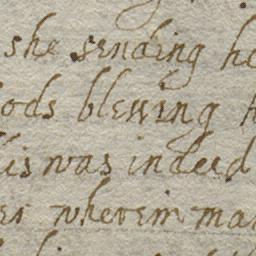 she sending he
ods blessing
his was indeed
wherein ma